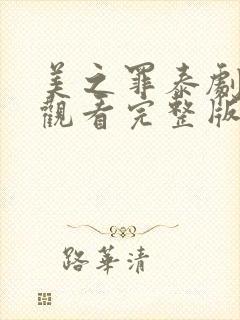 美之罪泰劇
觀看完整版
路華清